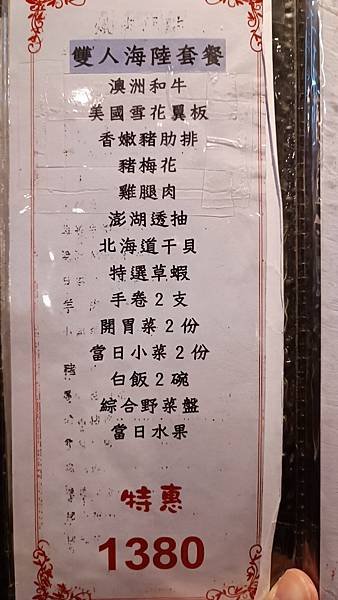 雙人海陸套餐
澳洲和牛
美國雪花翼板
香嫩豬肋排
豬梅花
雞腿肉
澎湖透抽
北海道干貝
特選草蝦
手卷2支
開胃菜2份
當日小菜2份
白飯2碗
綜合野菜盤
當日水果
特惠
1380